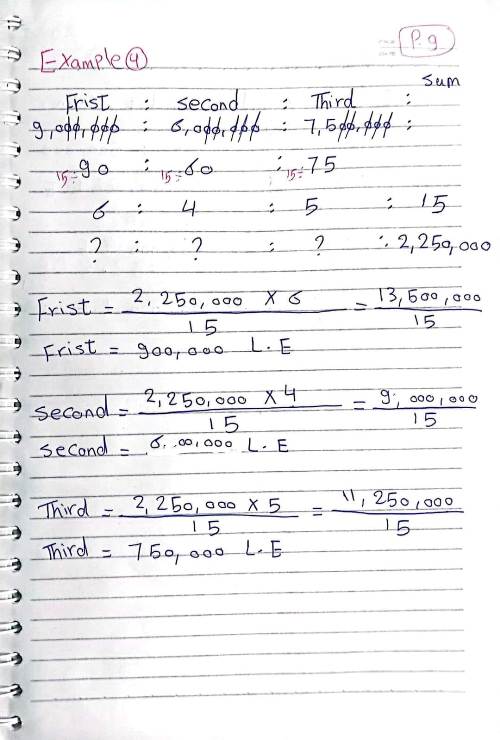 P.9
Example 4
Sum
Frist : second : Third :
9,000,000 : 6,000,000 : 7,500,000 :
15÷ 90 : 15÷ 60 : 15÷ 75
6 : 4 : 5 : 15
? : ? : ? : 2,250,000
Frist = 2,250,000 X 6 / 15 = 13,500,000 / 15
Frist = 900,000 L.E
second = 2,250,000 X 4 / 15 = 9,000,000 / 15
second = 600,000 L.E
Third = 2,250,000 X 5 / 15 = 11,250,000 / 15
Third = 750,000 L.E